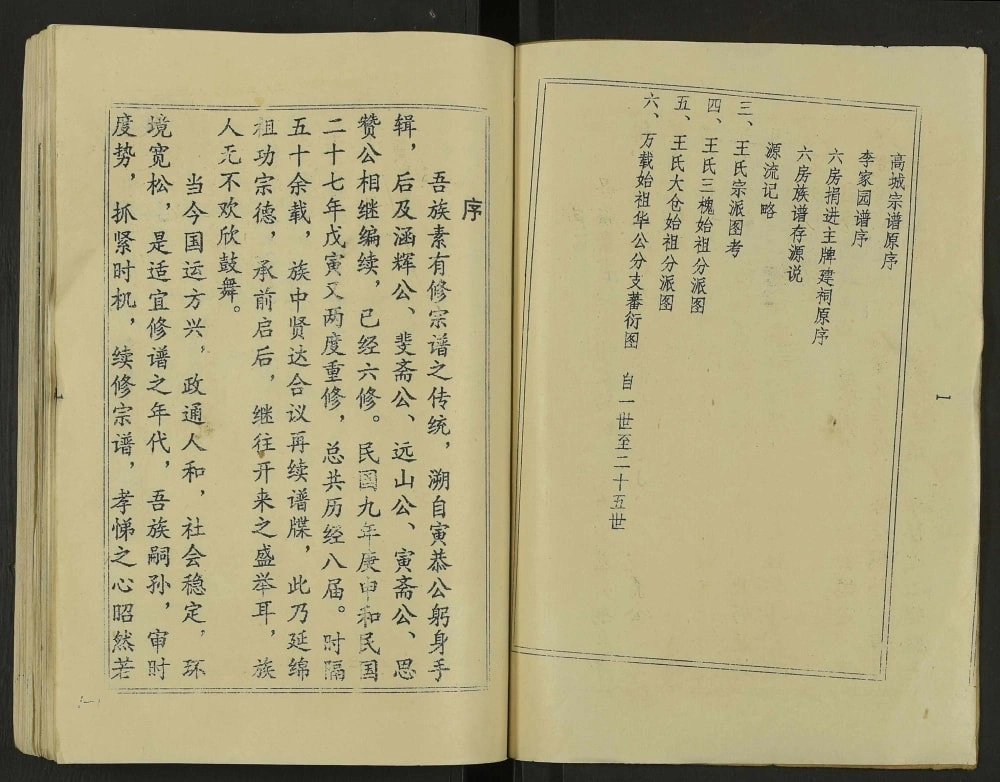 高城宗谱原序
李家园谱序
六房捐进主牌建祠原序
六房族谱存源说
源流记略
三、王氏宗派图考
四、王氏三槐始祖分派图
五、王氏大仓始祖分派图
六、万载始祖华公分支蕃衍图 自一世至二十五世
1
序
吾族素有修宗谱之传统，溯自寅恭公躬身手
辑，后及涵辉公、斐斋公、远山公、寅斋公、思
赞公相继编续，已经六修。民國九年庚申和民国
二十七年戊寅又两度重修，总共历经八届。时隔
五十余载，族中贤达合议再续谱牒，此乃延绵
祖功宗德，承前启后，继往开来之盛举耳，族
人无不欢欣鼓舞。
当今国运方兴，政通人和，社会稳定，环
境宽松，是适宜修谱之年代，吾族嗣孙，审时
度势，抓紧时机，续修宗谱，孝悌之心昭然若
1
（一）